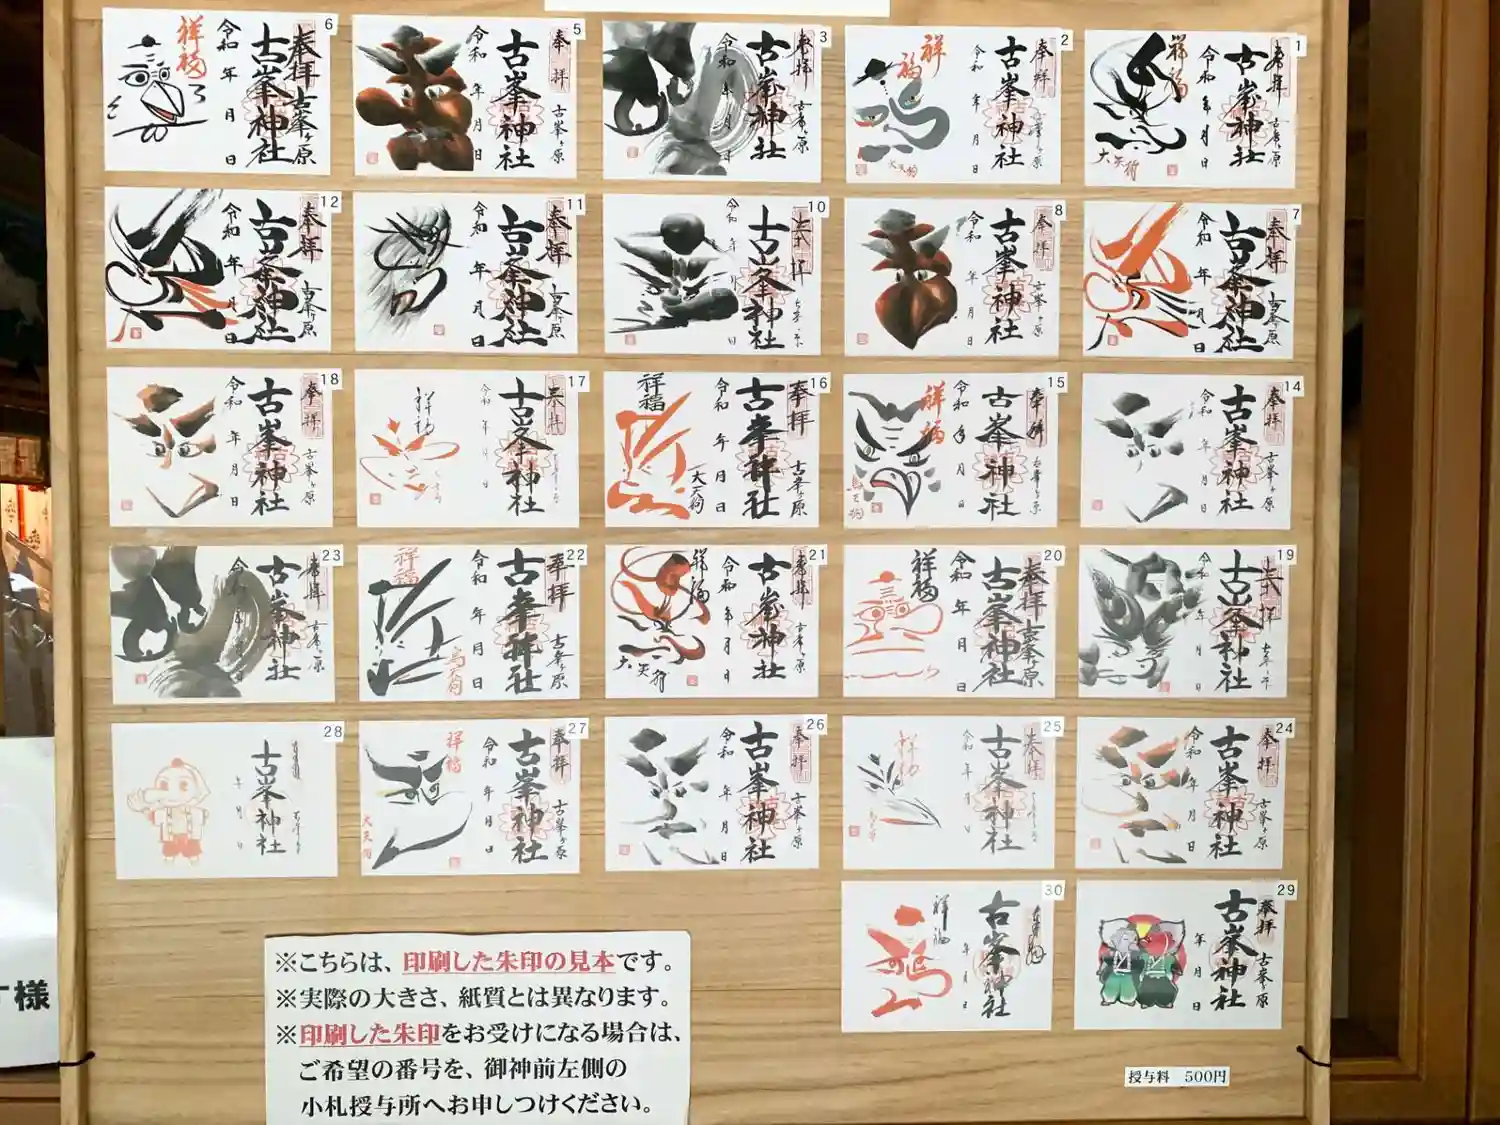 1
奉拝
古峯ヶ原
古峯神社
令和 年 月 日
祥福
大天狗
2
奉拝
古峯ヶ原
古峯神社
令和 年 月 日
祥福
大天狗
3
奉拝
古峯ヶ原
古峯神社
令和 年 月 日
5
奉拝
古峯ヶ原
古峯神社
令和 年 月 日
6
奉拝
古峯ヶ原
古峯神社
令和 年 月 日
祥福
7
奉拝
古峯ヶ原
古峯神社
令和 年 月 日
8
奉拝
古峯ヶ原
古峯神社
令和 年 月 日
10
奉拝
古峯神社
令和 年 月 日
11
奉拝
古峯ヶ原
古峯神社
令和 年 月 日
12
奉拝
古峯ヶ原
古峯神社
令和 年 月 日
14
奉拝
古峯ヶ原
古峯神社
令和 年 月 日
15
奉拝
古峯ヶ原
古峯神社
令和 年 月 日
祥福
烏天狗
16
奉拝
古峯ヶ原
古峯神社
令和 年 月 日
祥福
大天狗
17
奉拝
古峯神社
令和 年 月 日
祥福
18
奉拝
古峯ヶ原
古峯神社
令和 年 月 日
19
奉拝
古峯神社
令和 年 月 日
20
奉拝
古峯ヶ原
古峯神社
令和 年 月 日
祥福
21
奉拝
古峯ヶ原
古峯神社
令和 年 月 日
祥福
大天狗
22
奉拝
古峯ヶ原
古峯神社
令和 年 月 日
祥福
烏天狗
23
奉拝
古峯ヶ原
古峯神社
令和
24
奉拝
古峯ヶ原
古峯神社
令和 年 月 日
25
奉拝
古峯神社
令和 年 月 日
祥福
26
奉拝
古峯ヶ原
古峯神社
令和 年 月 日
27
奉拝
古峯ヶ原
古峯神社
令和 年 月 日
祥福
大天狗
28
古峯神社
年 月 日
29
奉拝
古峯ヶ原
古峯神社
年 月 日
30
古峯神社
年 月 日
祥福
授与料 500円
※こちらは、印刷した朱印の見本です。
※実際の大きさ、紙質とは異なります。
※印刷した朱印をお受けになる場合は、
ご希望の番号を、御神前左側の
小札授与所へお申しつけください。
様